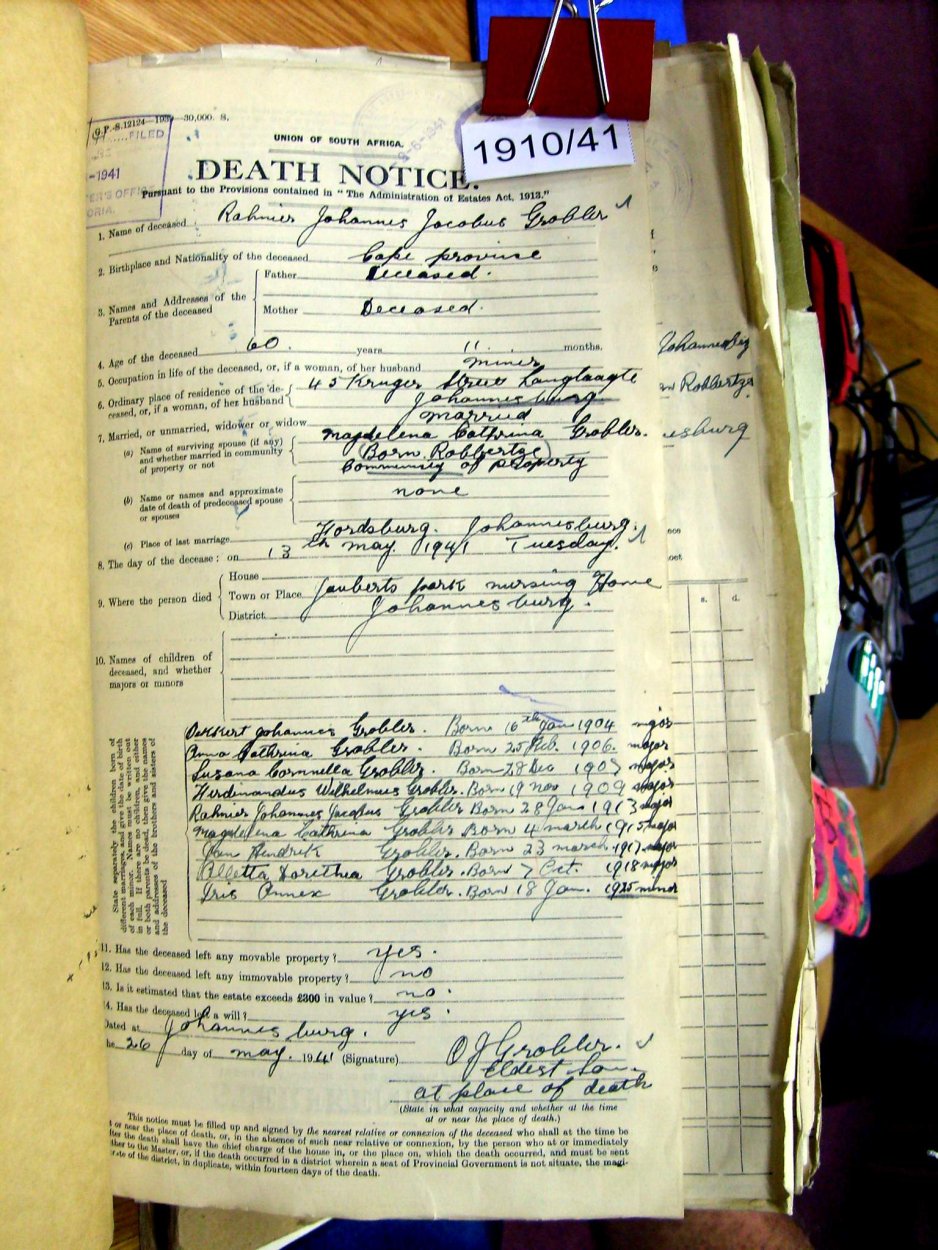 1910/41
G.P.-S.12124—193 —30,000. S.
FILED
-1941
UNION OF SOUTH AFRICA.
DEATH NOTICE.
Pursuant to the Provisions contained in "The Administration of Estates Act, 1913."
1. Name of deceased Rahnier Johannes Jacobus Grobler
2. Birthplace and Nationality of the deceased Cape province
3. Names and Addresses of the Parents of the deceased
Father Deceased.
Mother Deceased.
4. Age of the deceased 60 years 11 months.
5. Occupation in life of the deceased, or, if a woman, of her husband miner
6. Ordinary place of residence of the deceased, or, if a woman, of her husband
45 Kruger Street Langlaagte
Johannesburg.
7. Married, or unmarried, widower or widow married
(a) Name of surviving spouse (if any) and whether married in community of property or not
Magdelena Cathrina Grobler.
Born Robbertze
Community of property
(b) Name or names and approximate date of death of predeceased spouse or spouses
none
(c) Place of last marriage Fordsburg. Johannesburg.
8. The day of the decease: on 13th may 1941 Tuesday.
9. Where the person died
House
Town or Place Jouberts park nursing Home
District Johannesburg.
10. Names of children of deceased, and whether majors or minors
State separately the children born of different marriages, and give the date of birth of each minor. Names must be written out in full. If there are no children, and either or both parents be dead, then give the names and addresses of the brothers and sisters of the deceased
Johannes Grobler. Born 16th Jan 1904 major
Anna Cathrina Grobler. Born 25 Feb. 1906. major
Susana Cornnella Grobler. Born 28 Dec 1907 major
Ferdinandus Wilhelmus Grobler. Born 19 Nov 1909 major
Rahnier Johannes Jacobus Grobler Born 28 Jan 1913 major
Magdelena Cathrina Grobler Born 4 march 1915 major
Jan Hendrik Grobler. Born 23 march 1917 major
Alletta Dorithea Grobler. Born 7 Oct. 1918 major
Iris Annex Grobler. Born 18 Jan. 1925 minor
11. Has the deceased left any movable property? yes.
12. Has the deceased left any immovable property? no
13. Is it estimated that the estate exceeds £300 in value? no.
4. Has the deceased left a will? yes.
Dated at Johannesburg.
he 26 day of may. 1941 (Signature) O J Grobler.
Eldest Son
at place of death
(State in what capacity and whether at the time
at or near the place of death.)
This notice must be filled up and signed by the nearest relative or connexion of the deceased who shall at the time be
or near the place of death, or, in the absence of such near relative or connexion, by the person who at or immediately
the death shall have the chief charge of the house in, or the place on, which the death occurred, and must be sent
to the Master, or, if the death occurred in a district wherein a seat of Provincial Government is not situate, the magi-
of the district, in duplicate, within fourteen days of the death.
Robbertze
s. d.